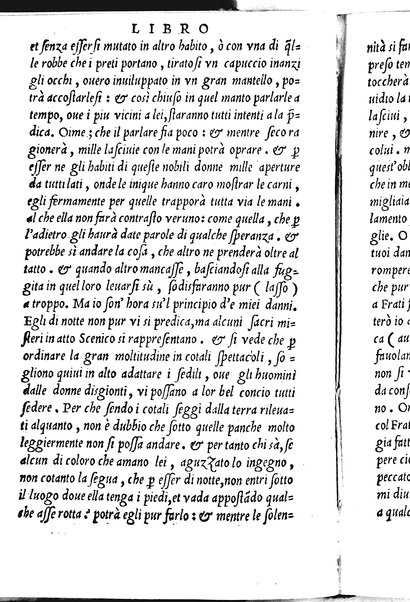 LIBRO
et senza essersi mutato in altro habito, ò con vna di q̃l-
le robbe che i preti portano, tiratosi vn capuccio inanzi
gli occhi, ouero inuiluppato in vn gran mantello, po-
trà accostarlesi : & così chiuso in quel manto parlarle a
tempo, oue i piu vicini a lei, staranno tutti intenti a la p̃-
dica. Oime; che il parlare fia poco : & mentre seco ra
gionerà, mille lasciuie con le mani potrà oprare. & p̱
esser ne gli habiti di queste nobili donne mille aperture
da tutti lati, onde le inique hanno caro mostrar le carni,
egli fermamente per quelle trapporà tutta via le mani.
al che ella non farà contrasto veruno: come quella, che p̱
l'adietro gli haurà date parole di qualche speranza. &
potrebbe sì andare la cosa, che altro ne prenderà oltre al
tatto. & quando altro mancasse, basciandosi alla fug-
gita in quel loro leuarsi sù, sodisfaranno pur (lasso)
a troppo. Ma io son' hora su'l principio d'e miei danni.
Egli di notte non pur vi si predica, ma alcuni sacri mi-
steri in atto Scenico si rappresentano. & si vede che p̱
ordinare la gran moltitudine in cotali spettacoli, so-
gliono quiui in alto adattare i sedili, oue gli huomini
dalle donne disgionti, vi possano a lor bel concio tutti
sedere. Per che sendo i cotali seggi dalla terra rileua-
ti alquanto, non è dubbio che sotto quelle panche molto
leggiermente non si possa andare. & per tanto chi sà, se
alcun di coloro che amano lei, aguzzato lo ingegno,
non cotanto la segua, che p̱ esser di notte, non entri sotto
il luogo doue ella tenga i piedi, et vada appostãdo qual-
che asse rotta? potrà egli pur farlo : & mentre le solen-
nità si fa
preso tem
candol
uidio la t
lasciui,
nire, &
colui. m
quest'obl
che in me
migliaia
lamento
glie. O
tuoi dan
rompere
che pur
a Frati
terò io a
ca (au
fauolan
non si v
da conse
no. On
col Frat
gia fatt
che pure
peccato
di cosa
a qualc